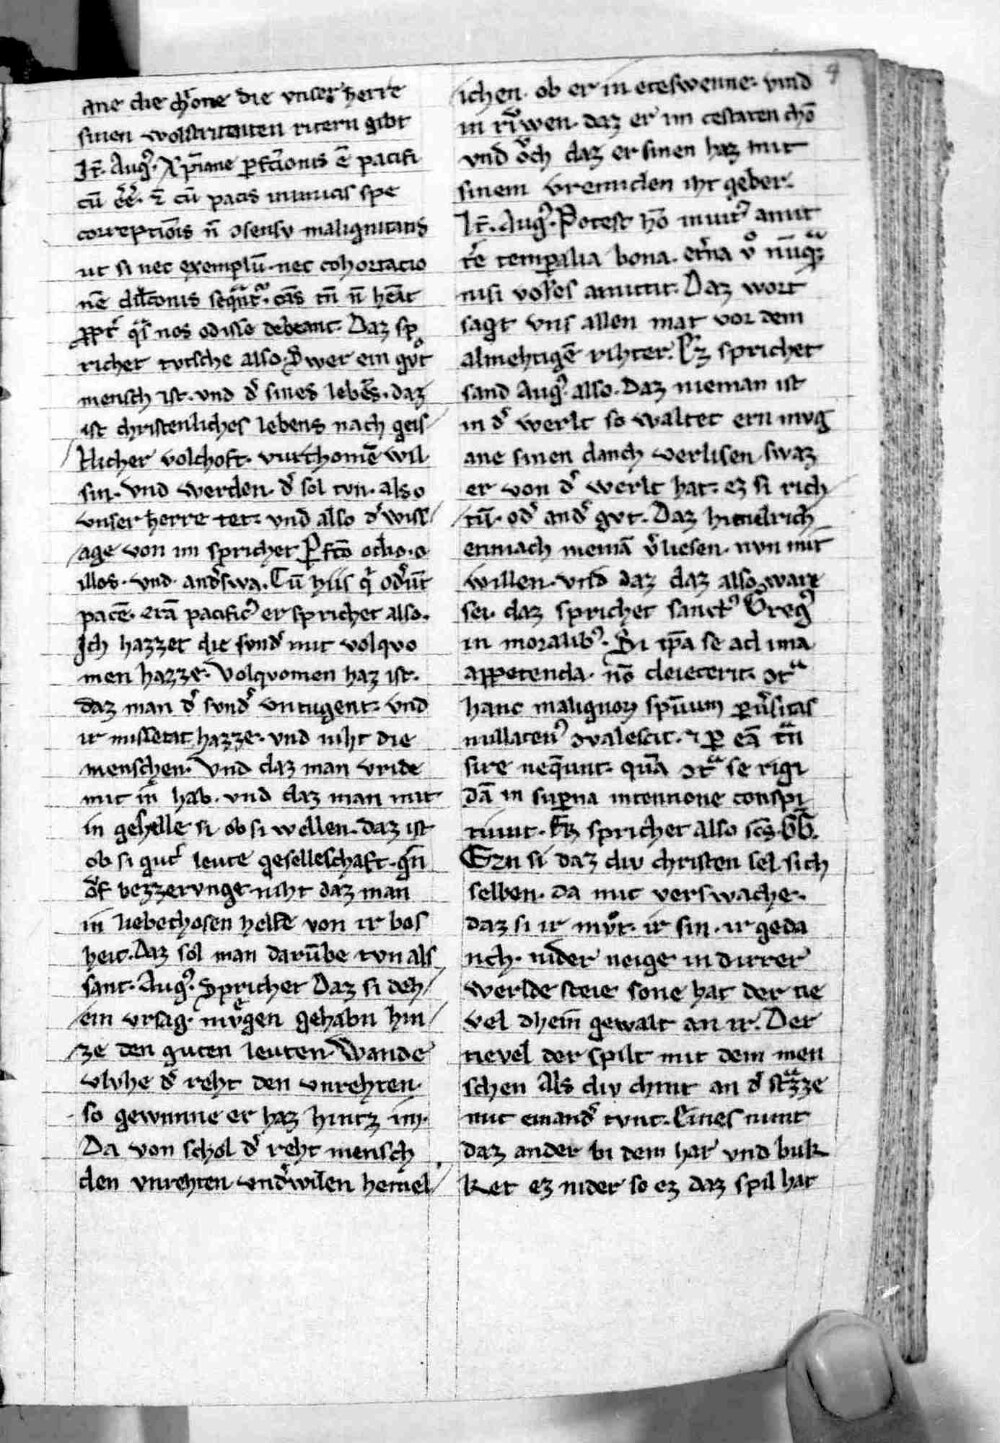 ane die chrone die vnser herre
sinen wolstritenten ritern gibt
It̄. Augꝰ. Xp̄iane ꝑfectionis ē pacifi
cū eē. ⁊ cū pacis inimicis spe
correptiōis n̄ ↄsensu malignitatis
ut si nec exemplū. nec cohortacio
nē dilc̄onis
richet tutsche also. Swer ein gvͦt
mensch ist. vnd dˀ sines lebēs. daz
ist christenliches lebens nach geis
tlicher volchoft. vurchomē wil
sin. vnd werden. dˀ sol tvn. also
vnser herre tet. vnd also dˀ wiss
age von im sprichet. ꝑfcō odio. o
illos. vnd. andˀswa. Cū hiis qͥ odˀūt
pacē. erā pacificꝰ er sprichet also.
Ich hazzet die svndˀ mit volqvo
men hazze. Volqvomen haz ist.
daz man dˀ svndˀ vntugent. vnd
ir missetat hazze. vnd niht die
menschen. Vnd daz man vride
mit in̄ hab. vnd daz man mit
in gehelle si ob si wellen. daz ist
ob si gutˀ leute geselleschaft. gn̄
bezzervnge. niht daz man
in liebechosen helfe von ir bos
heit. Daz sol man darūbe tvn als
sant. Augꝰ. Sprichet Daz si deh
ein vrsag. mvͤgen gehabn hin
ze den guten leuten. Wande
vlvhe dˀ reht den vnrehten.
so gewunne er haz hintz im.
Da von schol dˀ reht mensch
den vnrehten. vndˀwilen heimel
ichen. ob er in eteswenne. vind
in rivwen. daz er im cestaten chō
vnd oͮch daz er sinen haz mit
sinem vremiden iht geber.
It̄. Augꝰ. Potest hō inuitꝰ amit
tˀe temꝑalia bona. etˀna vͦ nūqͣꝫ
nisi volēs amittit. Daz wort
sagt vns allen mat vor dem
almehtigē rihter. Ez sprichet
sand Augꝰ. also. Daz nieman ist
in dˀ werlt so waltet ern mvg
ane sinen danch verlisen. swaz
er von dˀ werlt hat. ez si rich
tū. odˀ andˀ gvt. Daz himelrich
enmach niemā vˀliesen. nvn mit
willen. vnd daz daz also. ware
sei. daz sprichet sanctꝰ Gregꝰ
in moralibꝰ. Si ip̄a se ad ima
appetenda. nō deiecerit. ↄtͣ
hanc malignoꝝ spūum ꝑuˀsitas
nullatenꝰ ↄvalescit. ⁊ ꝑ eā tn̄
sire neqeunt. quā ↄtͣ se rigi
dā in suꝑna intentione conspi
tiunt. Ez sprichet also scs̄.
Ezn si daz div christen sel sich
selben. da mit verswache.
daz si ir mvͦt. ir sin. ir geda
nch. nider neige in dirrer
werlde steie sone hat der tie
vel dhein̄ gewalt an ir. Der
tievel der spilt mit dem men
schen Als div chint an dˀ stͣzze
mit einandˀ tvnt. Eines nimt
daz ander bi dem har vnd buk
ket ez nider so ez daz spil hat